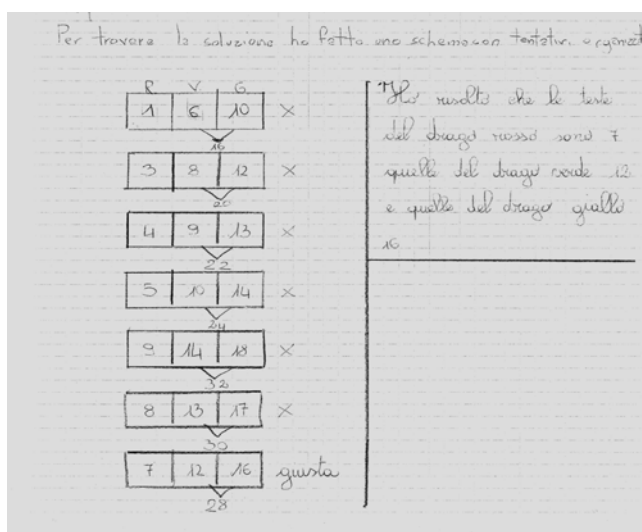 Per trovare la soluzione ho fatto uno schema con tentativi organizzat
R V G
1 6 10 x
16
3 8 12 x
20
4 9 13 x
22
5 10 14 x
24
9 14 18 x
32
8 13 17 x
30
7 12 16 giusta
28
Ho risolto che le teste
del drago rosso sono 7
quelle del drago verde 12
e quelle del drago giallo
16